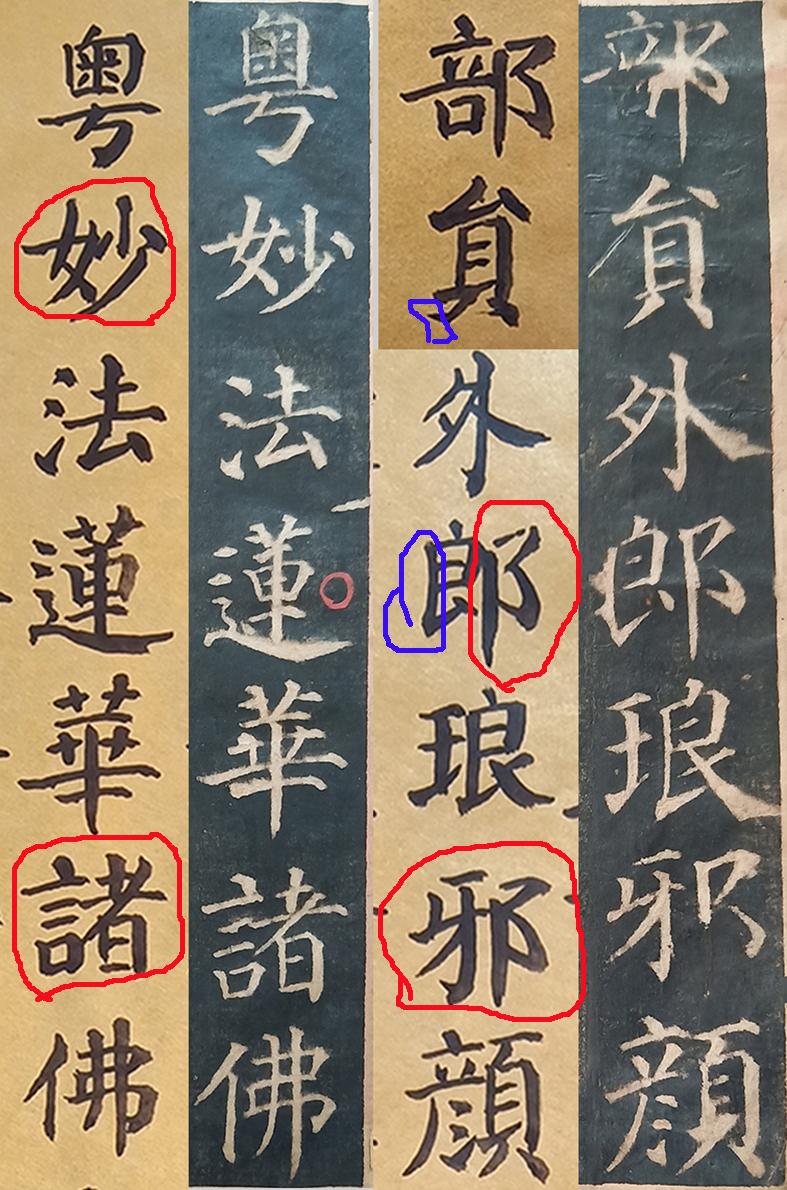 部貟外郎琅邪顔
部貟外郎琅邪顔
粤妙法蓮華諸佛
粤妙法蓮華諸佛